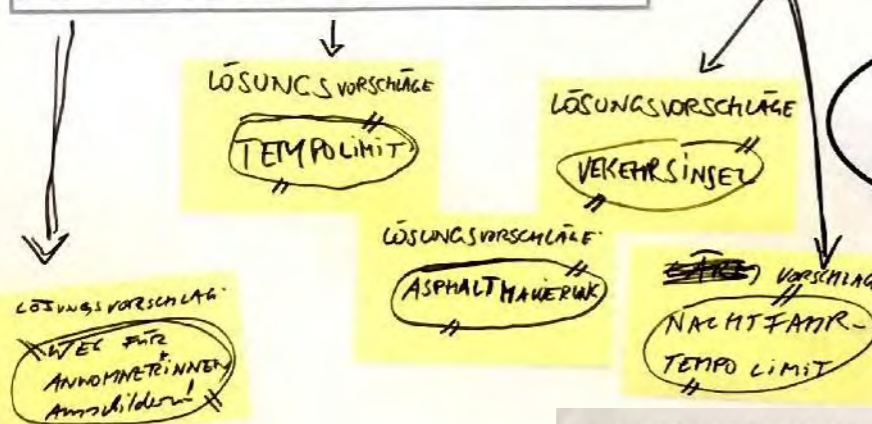 LÖSUNGSVORSCHLÄGE
TEMPOLIMIT
LÖSUNGSVORSCHLÄGE
VEKEHRSINSEL
LÖSUNGSVORSCHLÄGE
ASPHALT
VORSCHLAG
NACHTFAHR-
TEMPO LIMIT
LÖSUNGSVORSCHLAG
WEG FÜR
ANWOHNER*INNEN
Ausschildern!